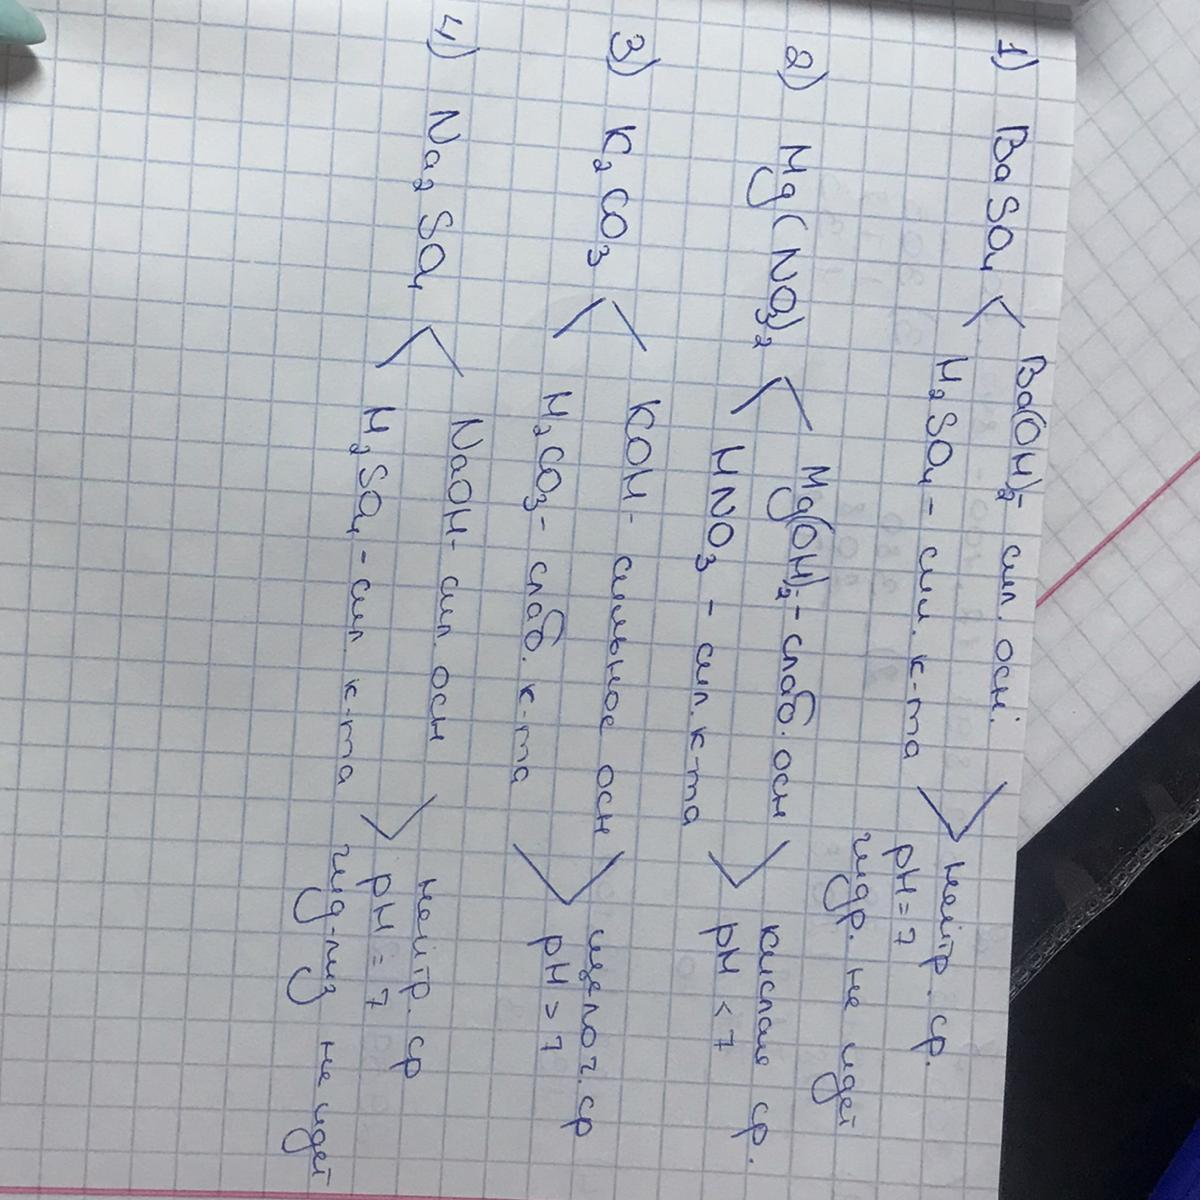 1) BaSO₄ < Ba(OH)₂ - сил. осн.
H₂SO₄ - сил. к-та > нейтр. ср.
pH = 7
гидр. не идет
2) Mg(NO₃)₂ < Mg(OH)₂ - слаб. осн
HNO₃ - сил. к-та > кислая ср.
pH < 7
3) K₂CO₃ < KOH - сильное осн
H₂CO₃ - слаб. к-та > щелоч. ср
pH > 7
4) Na₂SO₄ < NaOH - сил. осн
H₂SO₄ - сил. к-та > нейтр. ср
pH = 7
гид-лиз не идет